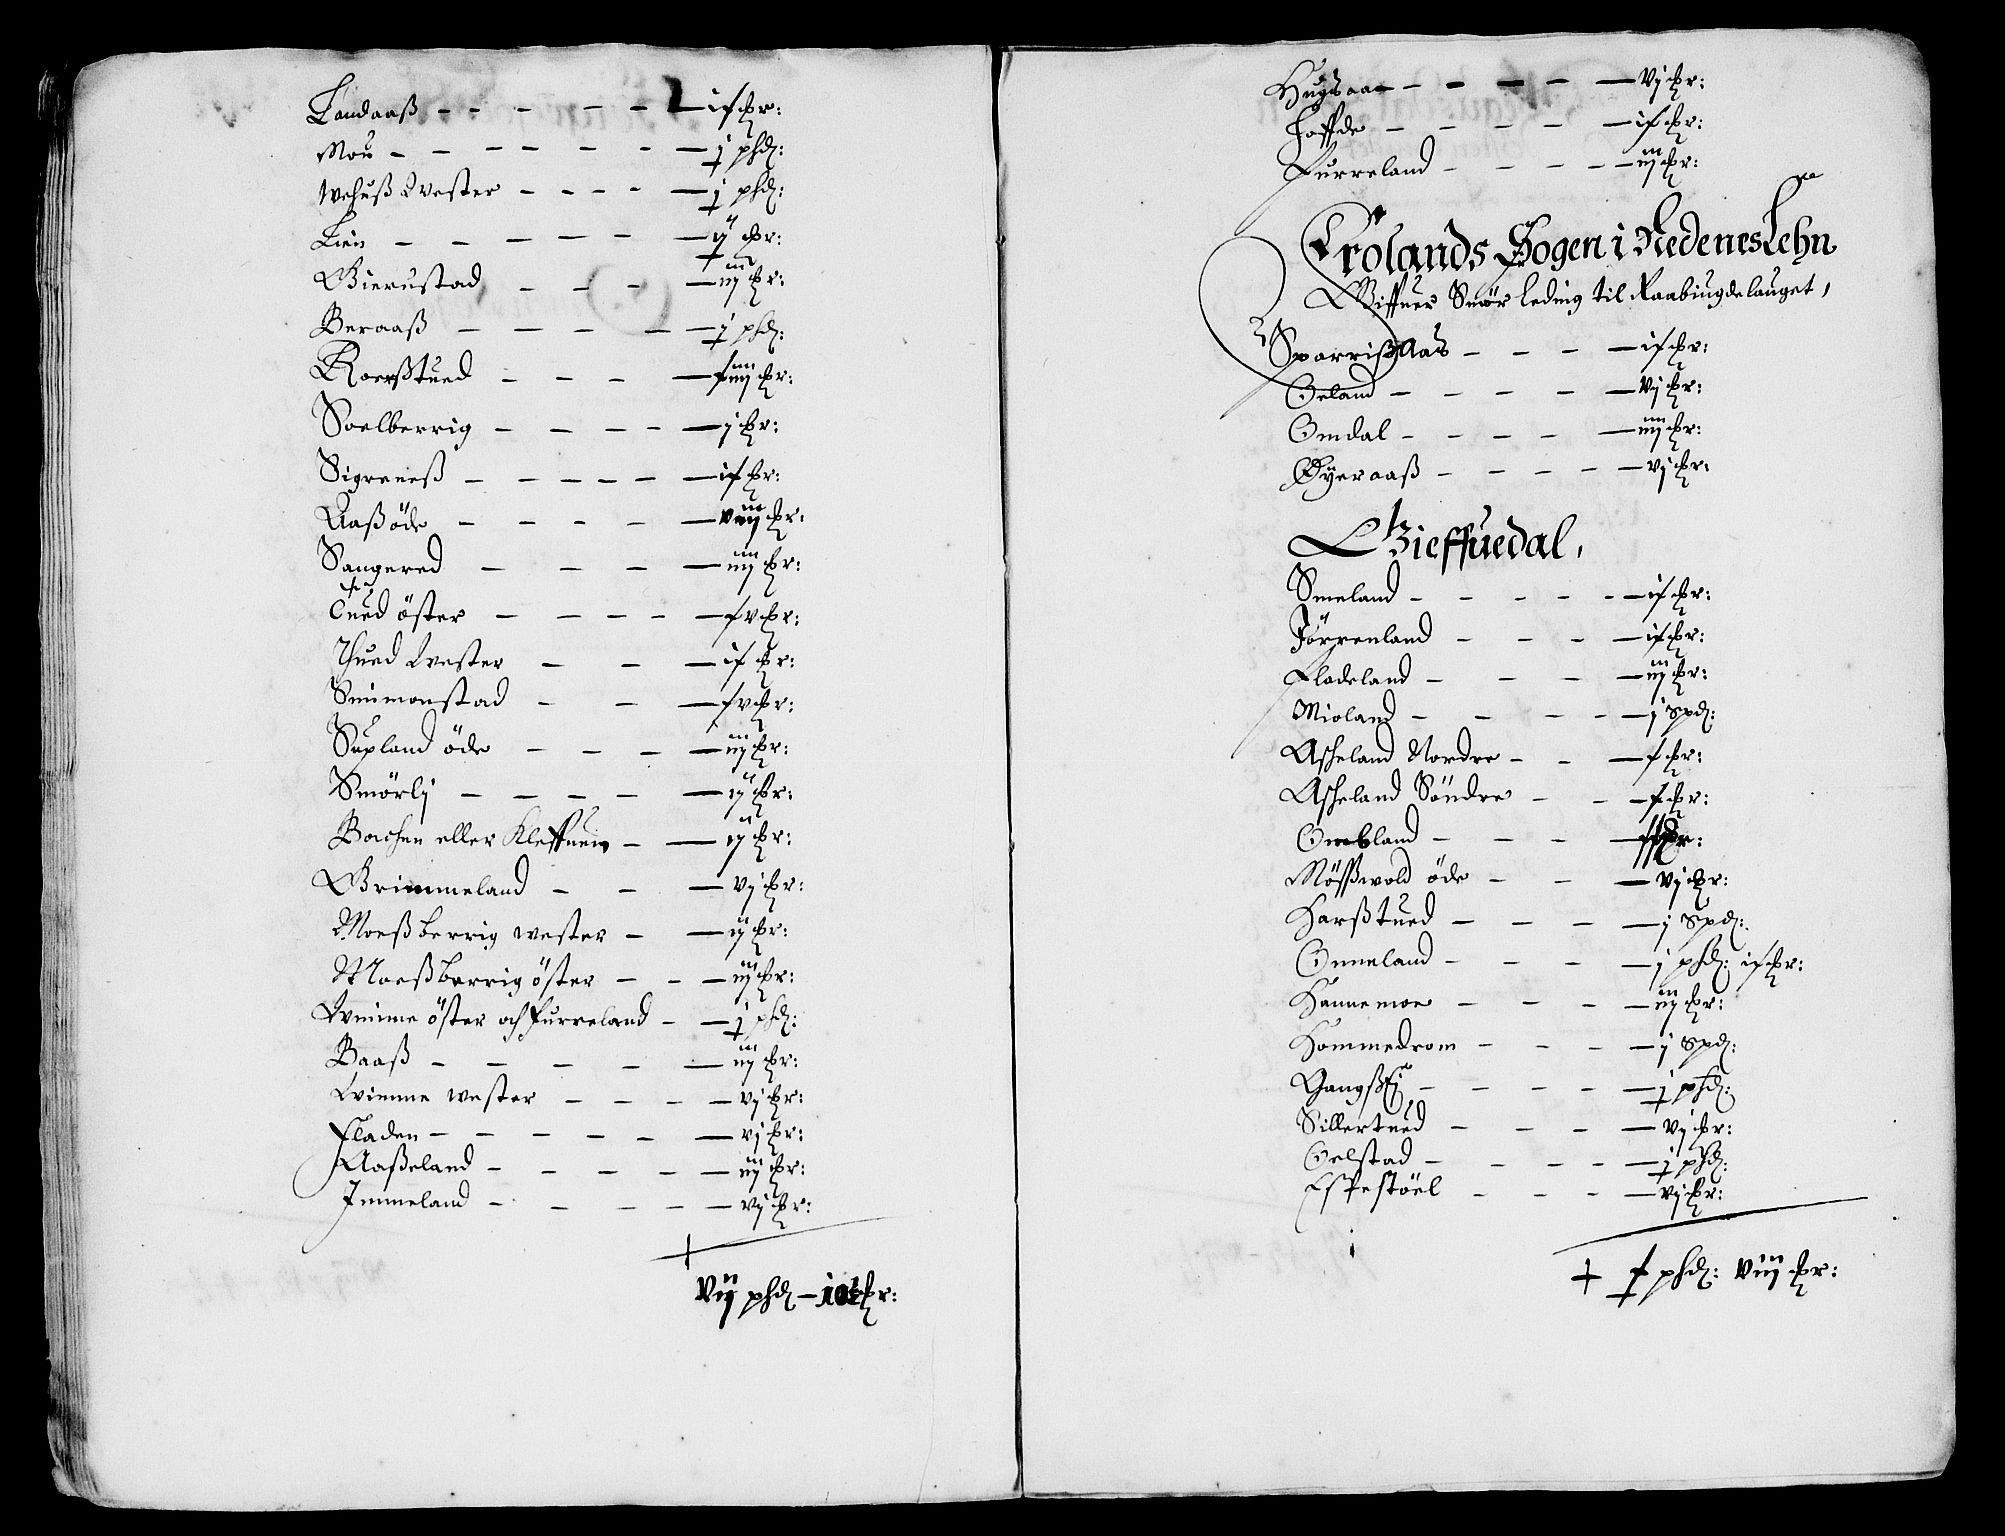 Landaaß - - - - - - if [?]r:
Mou - - - - - - - j phd:
Wehuß Wester - - - - - j phd:
Lien - - - - - - ij [?]r:
Gierustad - - - - iij [?]r:
Beraaß - - - - - j phd:
Roerßtued - - - - fiiij [?]r:
Soelberrig - - - - - j [?]r:
Sigreneß - - - - - - if [?]r:
Aaß öde - - - - - viij [?]r:
Sangered - - - - iiij [?]r:
Tued öster - - - - - fv [?]r:
Thued Wester - - - if [?]r:
Simmonstad - - - fv [?]r:
Supland öde - - - - iij [?]r:
Smörlj - - - - - ij [?]r:
Bachen eller Kleffuein - - ij [?]r:
Grimmeland - - - vj [?]r:
Moeßberrig wester - - ij [?]r:
Moeßberrig öster - - - iij [?]r:
Wimme öster och Furreland - - j phd:
Baaß - - - - - - iij [?]r:
Wimme wester - - - - vj [?]r:
Fladen - - - - - - vj [?]r:
Aaßeland - - - - - iij [?]r:
Immeland - - - - - vj [?]r:
vij phd - [?]r:
Hugsaae - - - - - vj [?]r:
Hoffde - - - - - if [?]r:
Furreland - - - - - iij [?]r:
Frölands Sogen i Nedenes Lehn
Giffuer Smör leding til Raabiugdelauget,
Sparrißaas - - - - if [?]r:
Oeland - - - - - vj [?]r:
Omdal - - - - - iiij [?]r:
Øyeraaß - - - - - vj [?]r:
Gieffuedal,
Smeland - - - - - - if [?]r:
Jörrenland - - - - if [?]r:
Fladeland - - - - iij [?]r:
Mioland - - - - - j Spd:
Asheland Nordre - - - f [?]r:
Asheland Söndre - - - f [?]r:
Ombland - - - - [?]r:
Mößwold öde - - - vj [?]r:
Harßtued - - - - j Spd:
Omneland - - - - j phd: if [?]r:
Hannemoe - - - - iij [?]r:
Hommedrom - - - - j Spd:
Gangßei - - - - - j phd:
Sillertued - - - - vj [?]r:
Oelstad - - - - - j phd:
Espestöel - - - - vj [?]r:
f phd: viij [?]r: